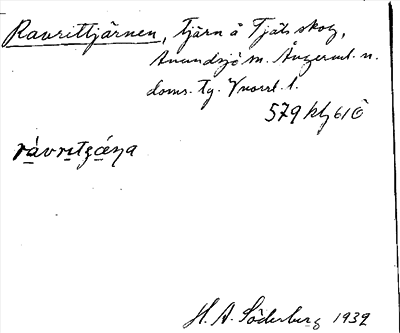 Ravrittjärnen, tjärn å Tjäls skog,
Anundsjö m. Ångerml. n.
doms. tg. Vnorrl. l.
579 kg 61 Ö
rávritʒ́éṇa
H. A. Söderberg 1932